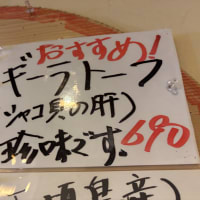 おすすめ!
ギーラトーフ
(シャコ貝の肝)
珍味です。690
産)